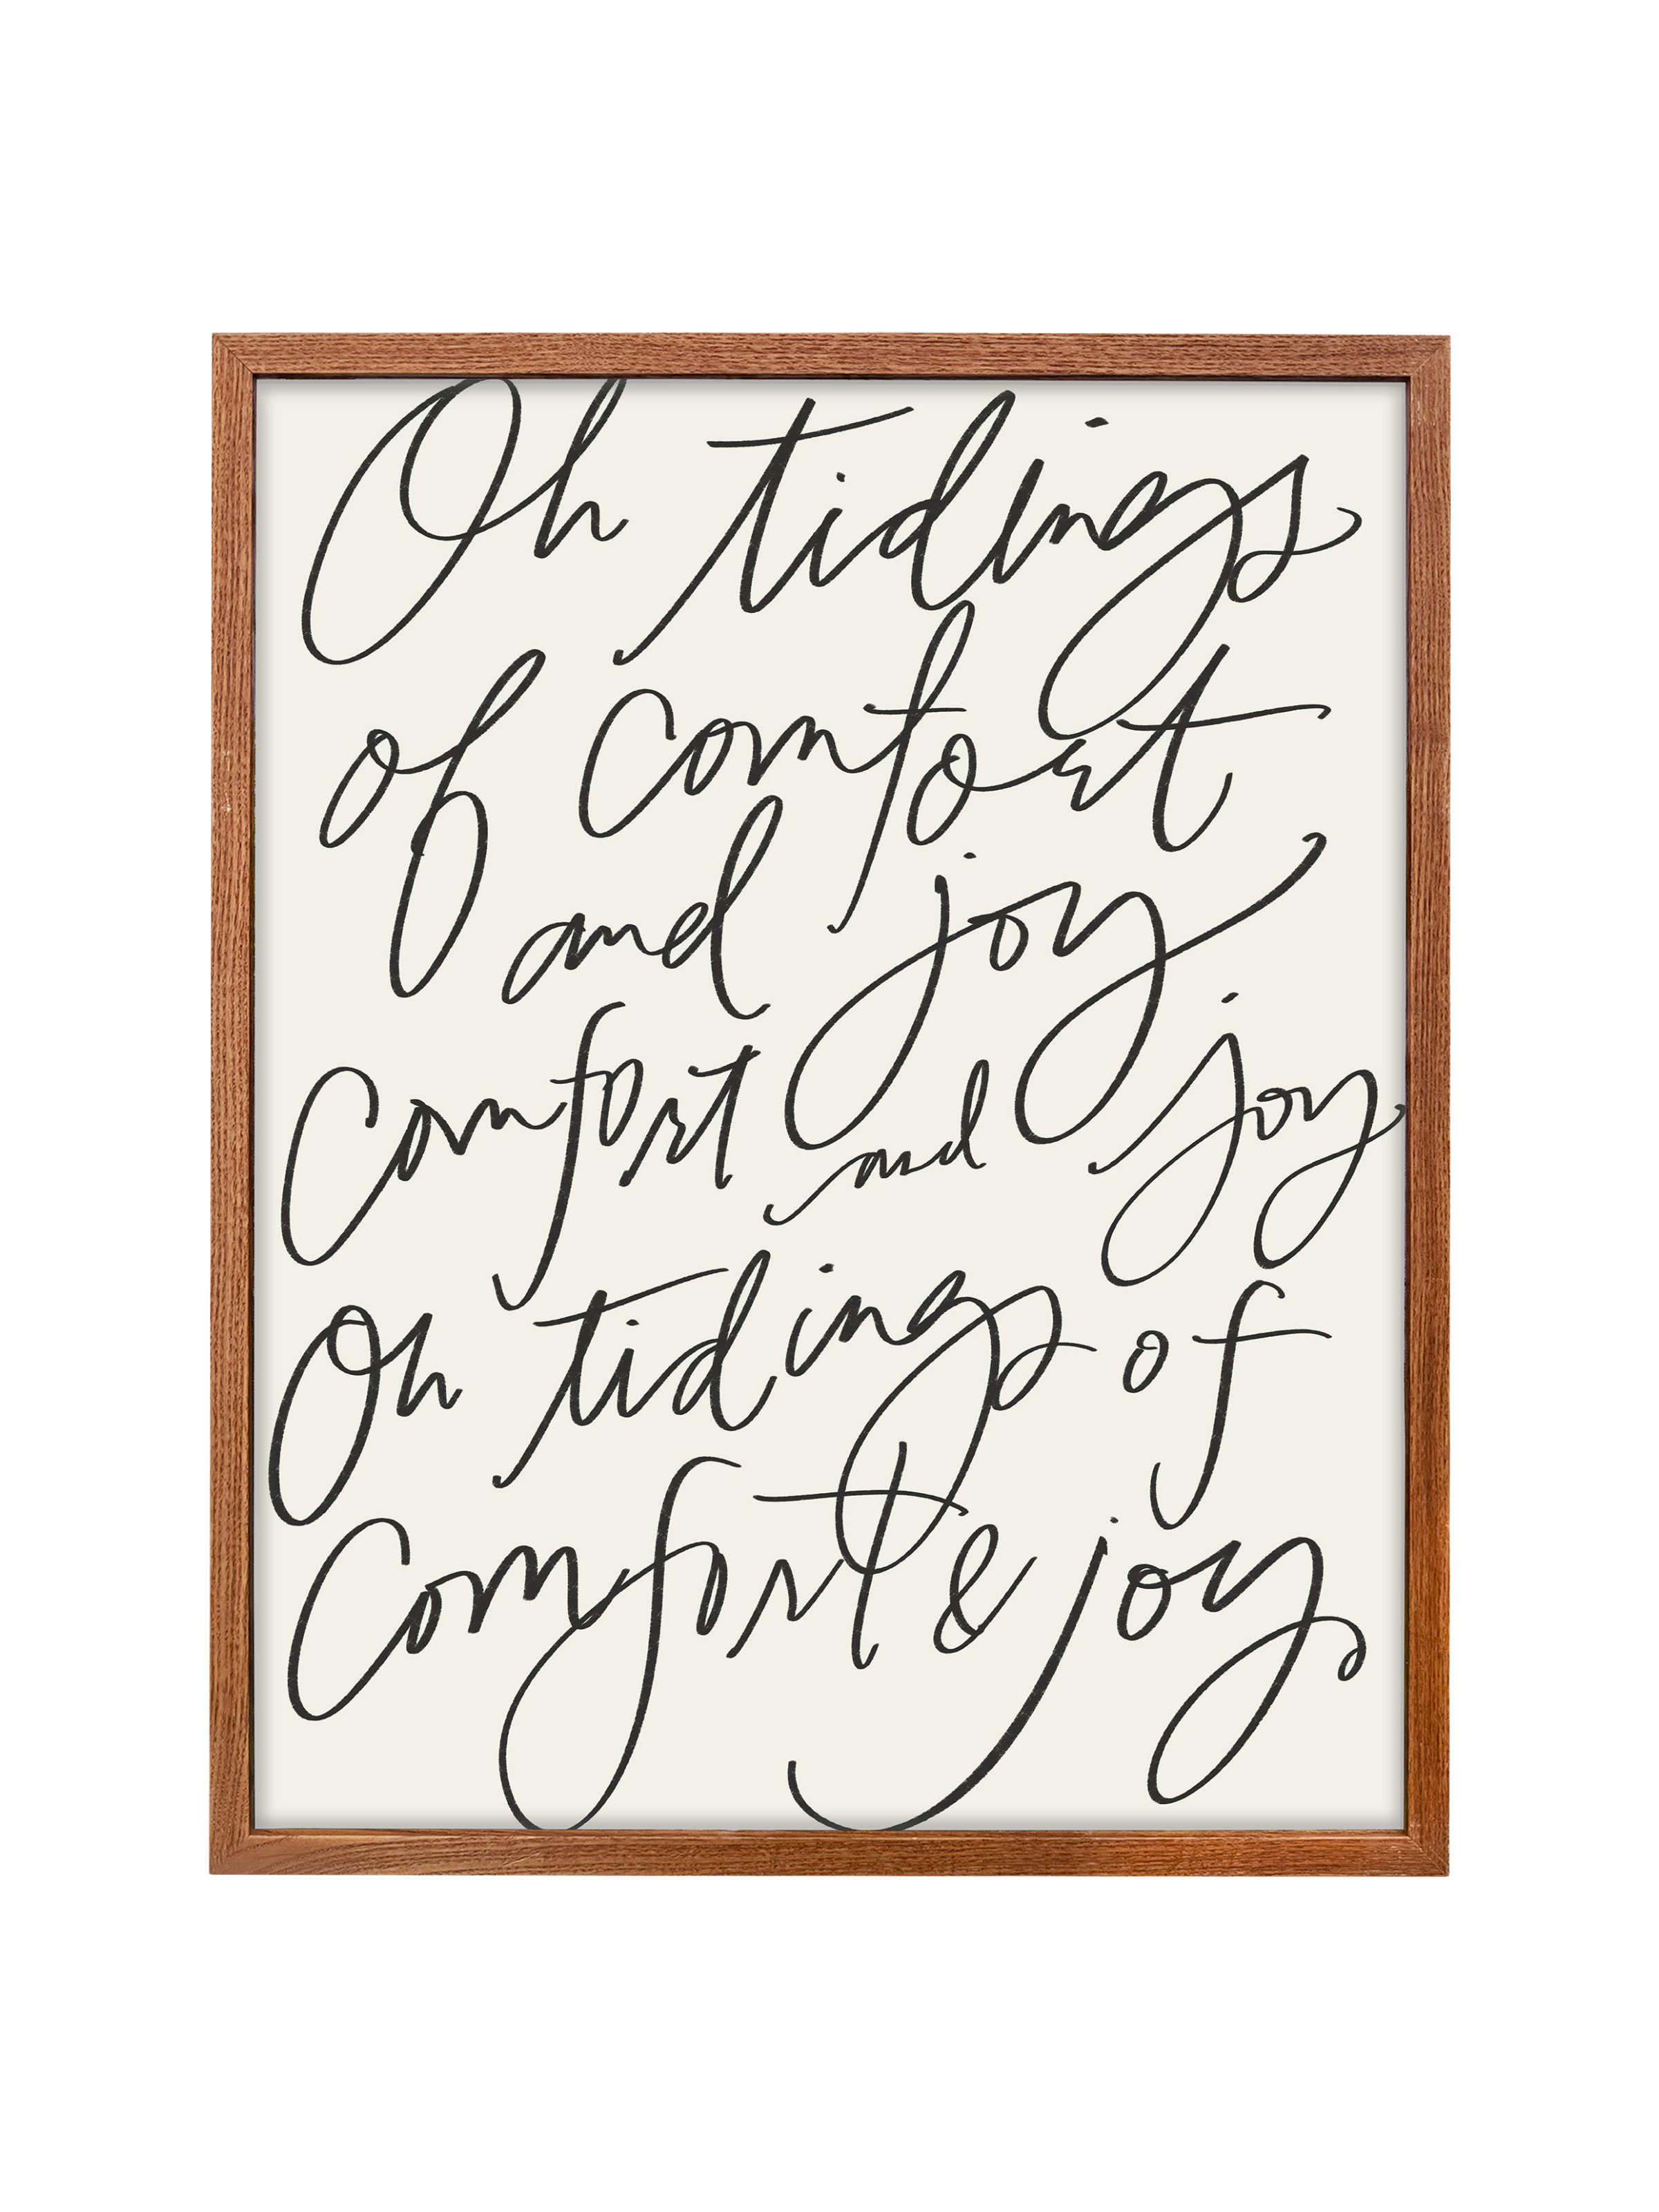 Oh tidings
of comfort
and joy
comfort and joy
Oh tidings of
comfort & joy